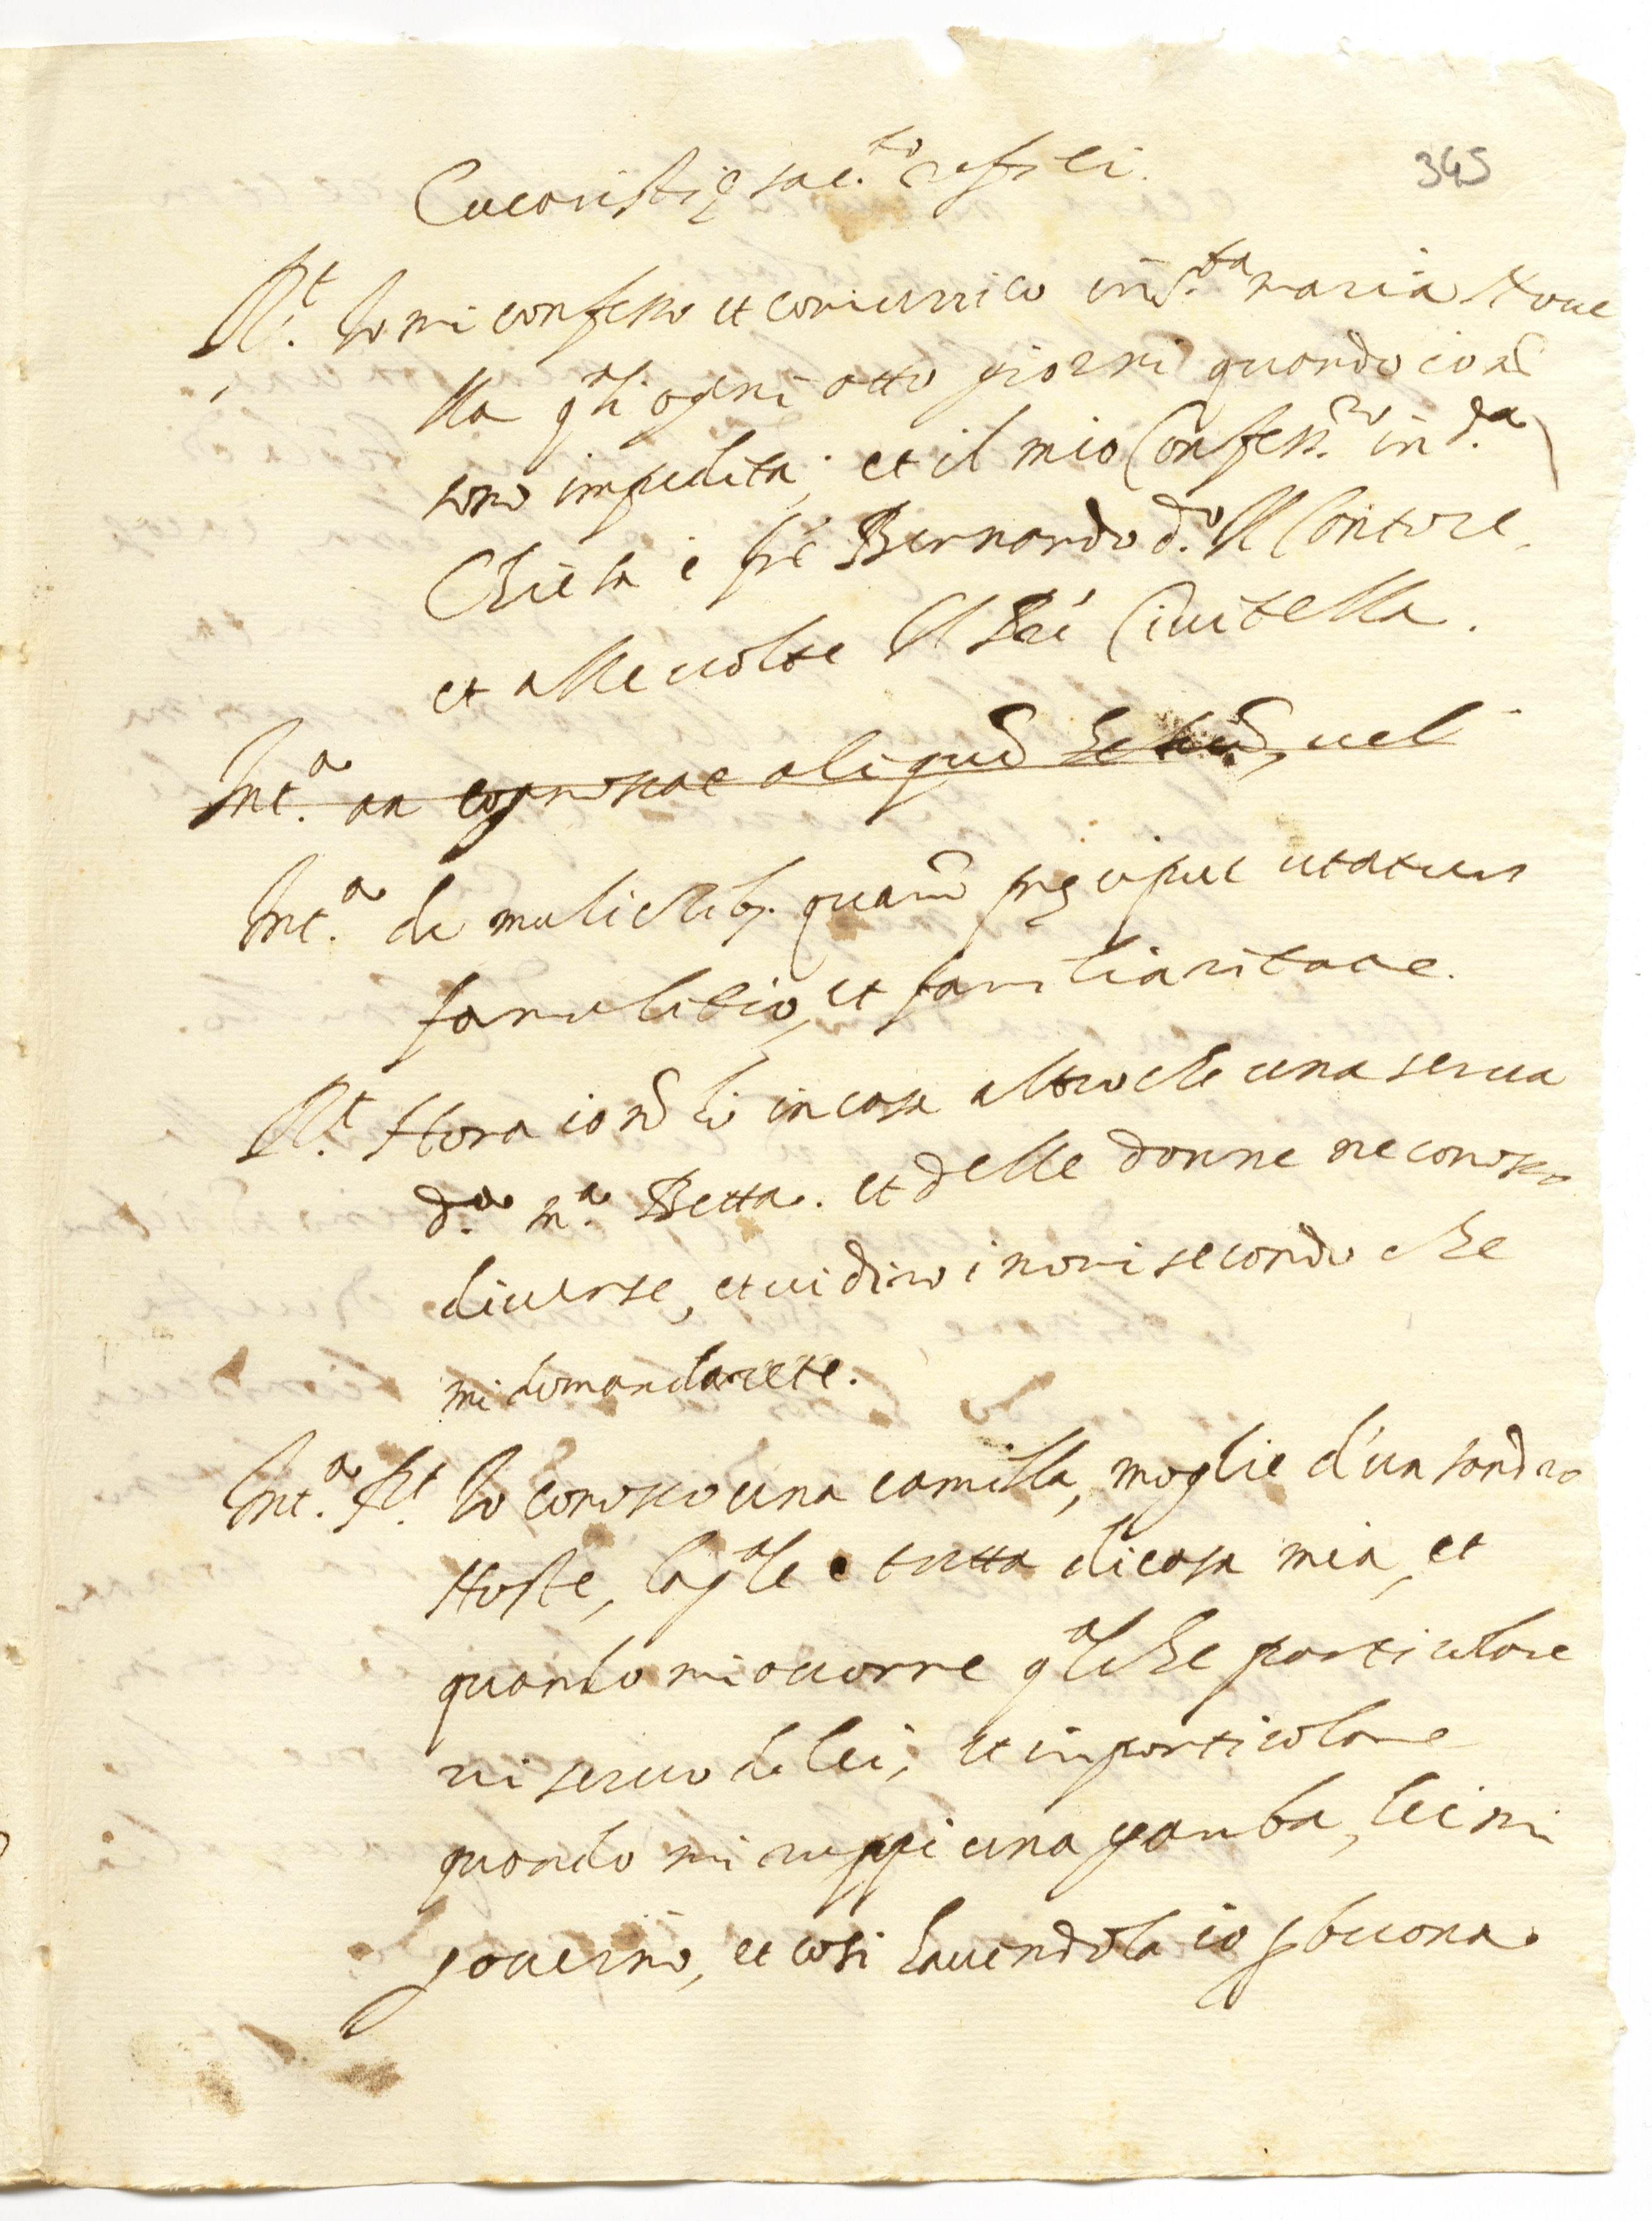 345
Eucaristię sac.to refici.
R.t Io mi confesso et comunico in S.ta maria Nove
lla q.li ogni otto giorni quando io nõ
sono impedita; et il mio Confess.re in d.a
Chiesa è frè Bernardo d.o Il Cantore,
et alle uolte Il Prè Ciuitella.
Int.a an cognoscat aliquã uel
Int.a de mulierib. quarũ pręcipue utatur
famulitio, et familiaritate.
R.t Hora io nõ hò in casa altro che una serua
d.a m.a Betta. et delle donne ne conosco
diuerse, et ui dirò i nomi secondo che
mi domandarete.
Int.a R.t Io conosco una camilla, moglie d'un sandro
Hoste, la q.le è tutta di casa mia, et
quando mi occorre q.lche particolare
mi seruo de lei; et in particolare
quando mi ruppi una gamba, lei mi
gouernò, et così hauendola io p buona